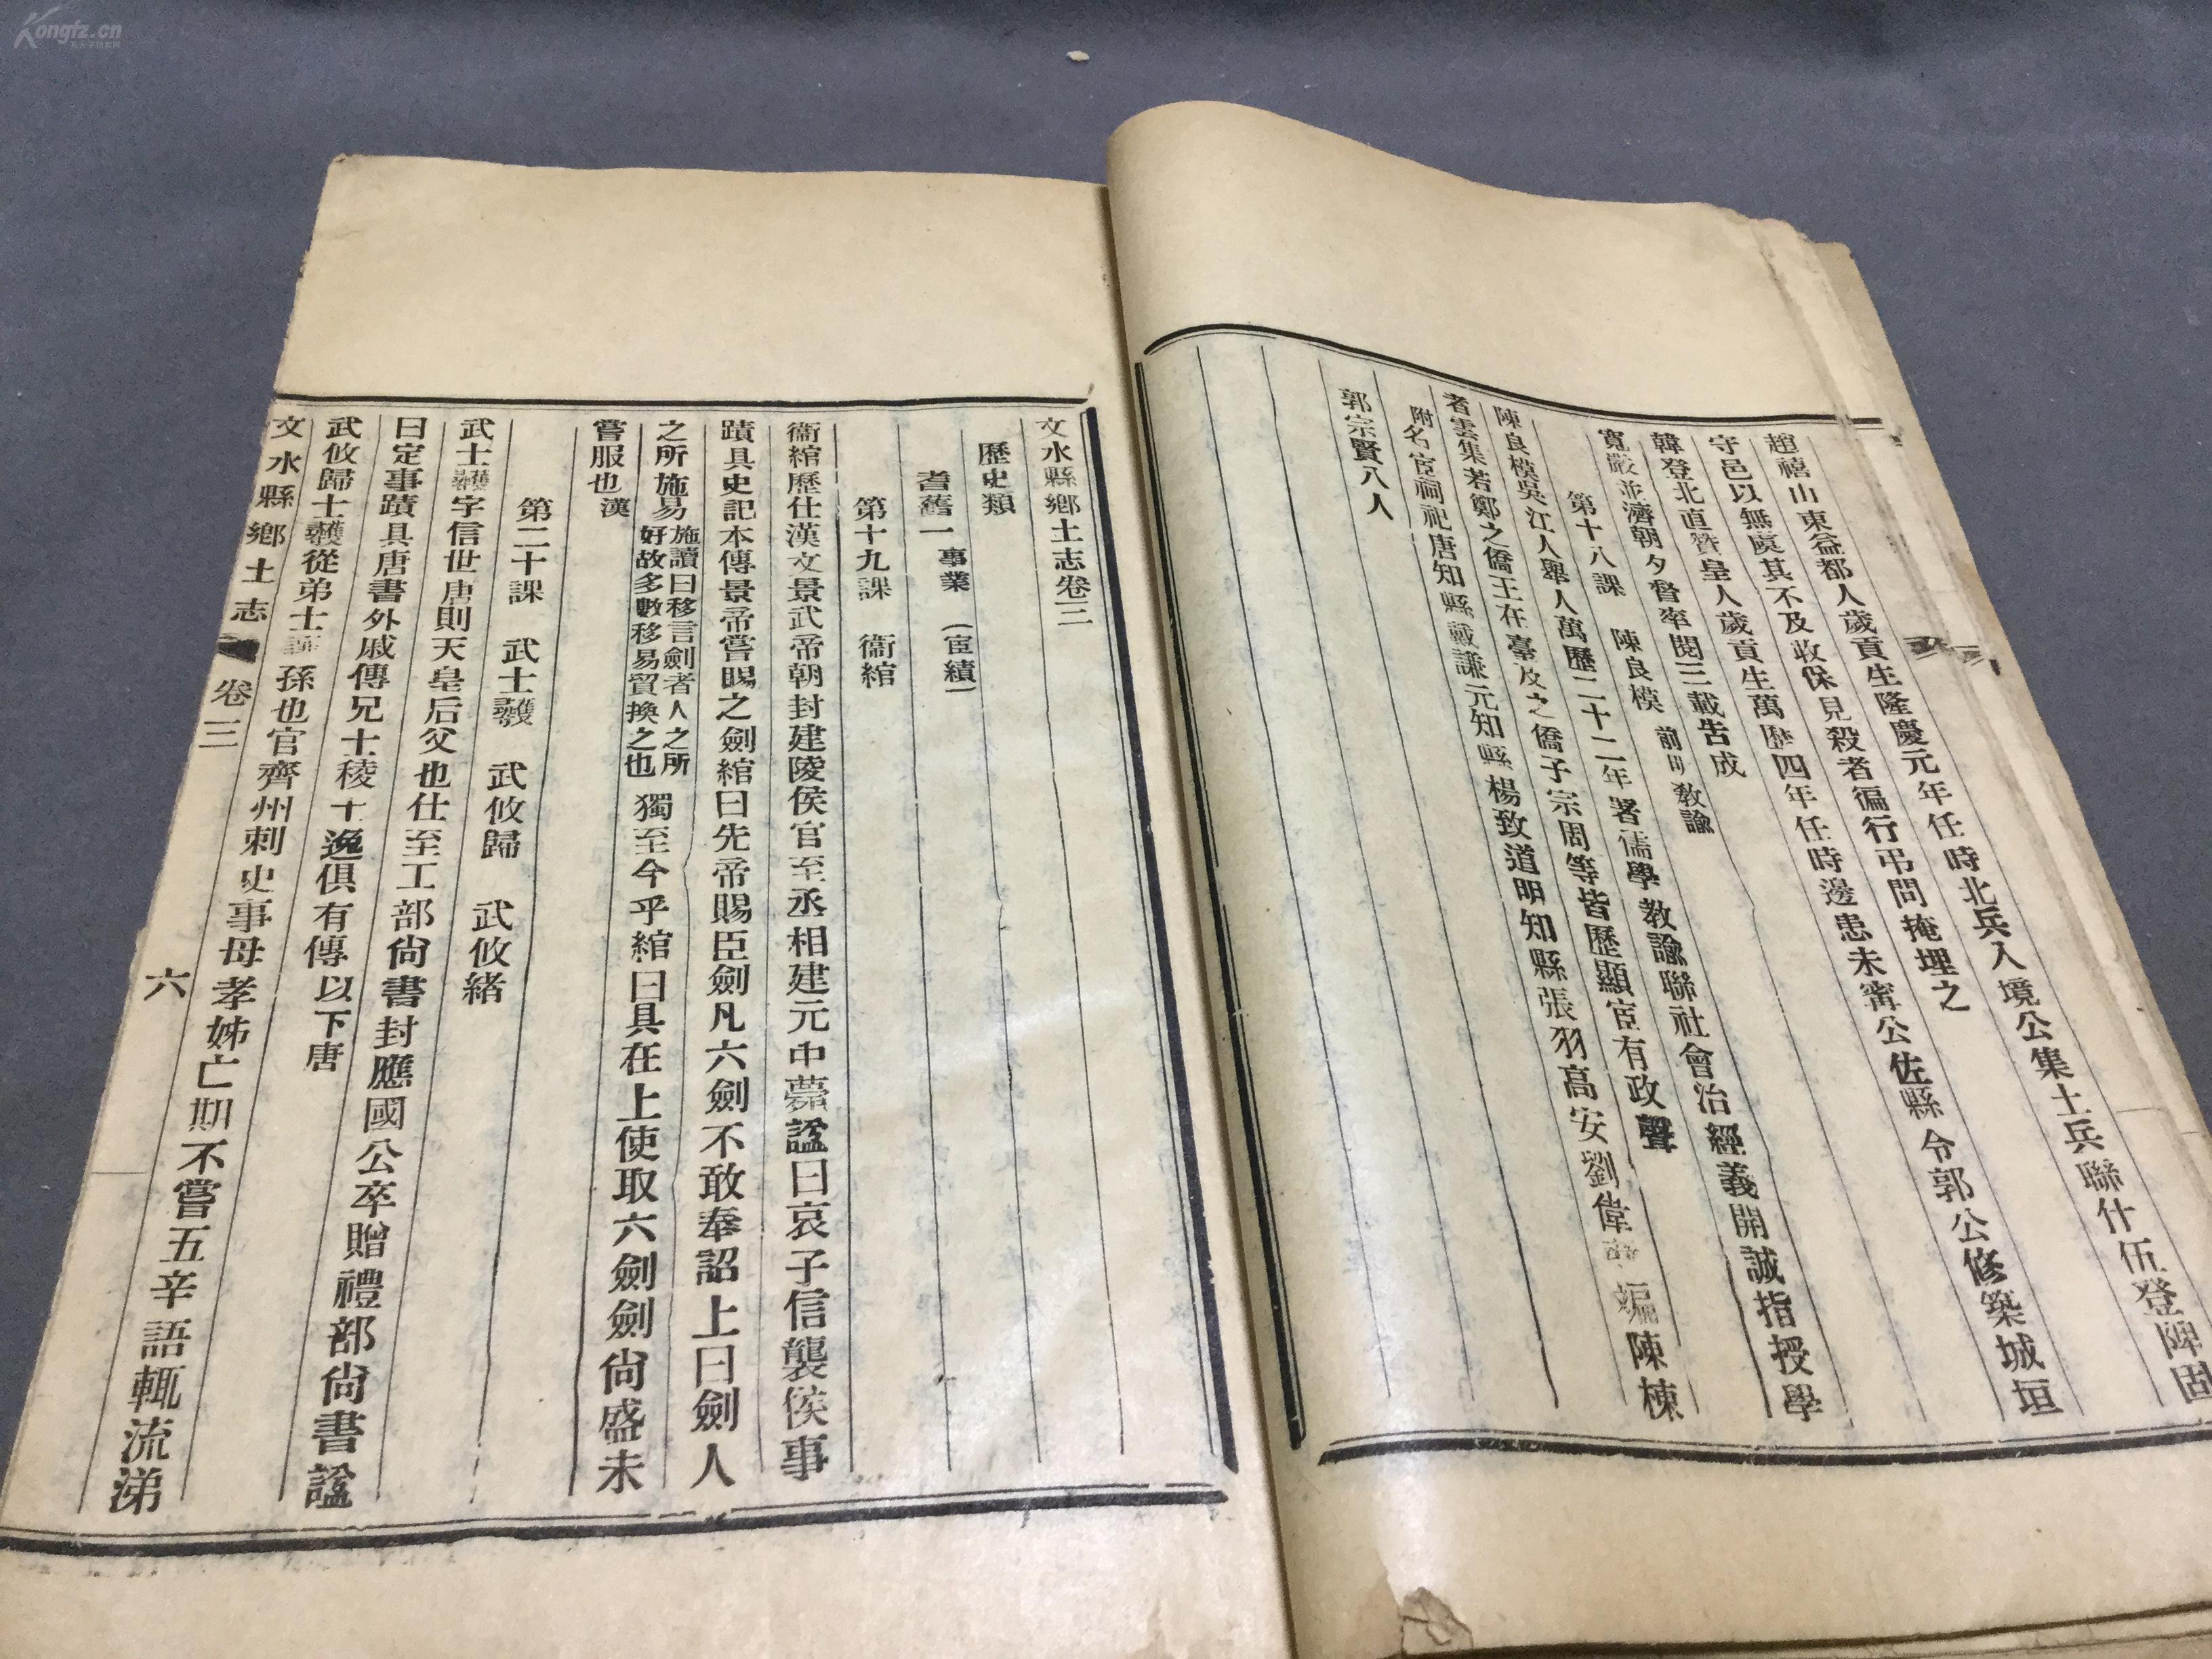 趙禧山東益都人歲貢生隆慶元年任時北兵入境公集土兵聯什伍登陴固
守邑以無虞其不及收保見殺者徧行弔問掩埋之
韓登北直贊皇人歲貢生萬歷四年任時邊患未寗公佐縣令郭公修築城垣
寬嚴並濟朝夕督率閱三載告成
第十八課 陳良模 前明教諭
陳良模吳江人舉人萬歷二十二年署儒學教諭聯社會治經義開誠指授學
者雲集若鄭之僑王在臺及之僑子宗周等皆歷顯宦有政聲
附名宦祠祀唐知縣戴謙元知縣楊致道明知縣張羽高安劉偉 編陳棟
郭宗賢八人
文水縣鄉土志卷三
歷史類
耆舊一 事業 (宦績)
第十九課 衞綰
衞綰歷仕漢文景武帝朝封建陵侯官至丞相建元中薨諡曰哀子信襲侯事
蹟具史記本傳景帝嘗賜之劍綰曰先帝賜臣劍凡六劍不敢奉詔上曰劍人
之所施易 施讀曰移言劍者人之所好故多數移易貿換之也 獨至今乎綰曰具在上使取六劍劍尙盛未
嘗服也 漢
第二十課 武士彠 武攸歸 武攸緒
武士彠字信世唐則天皇后父也仕至工部尙書封應國公卒贈禮部尙書諡
曰定事蹟具唐書外戚傳兄士稜士逸俱有傳 以下唐
武攸歸士彠從弟士 孫也官齊州刺史事母孝姊亡期不嘗五辛語輒流涕
文水縣鄉土志 卷三 六
Kongfz.cn